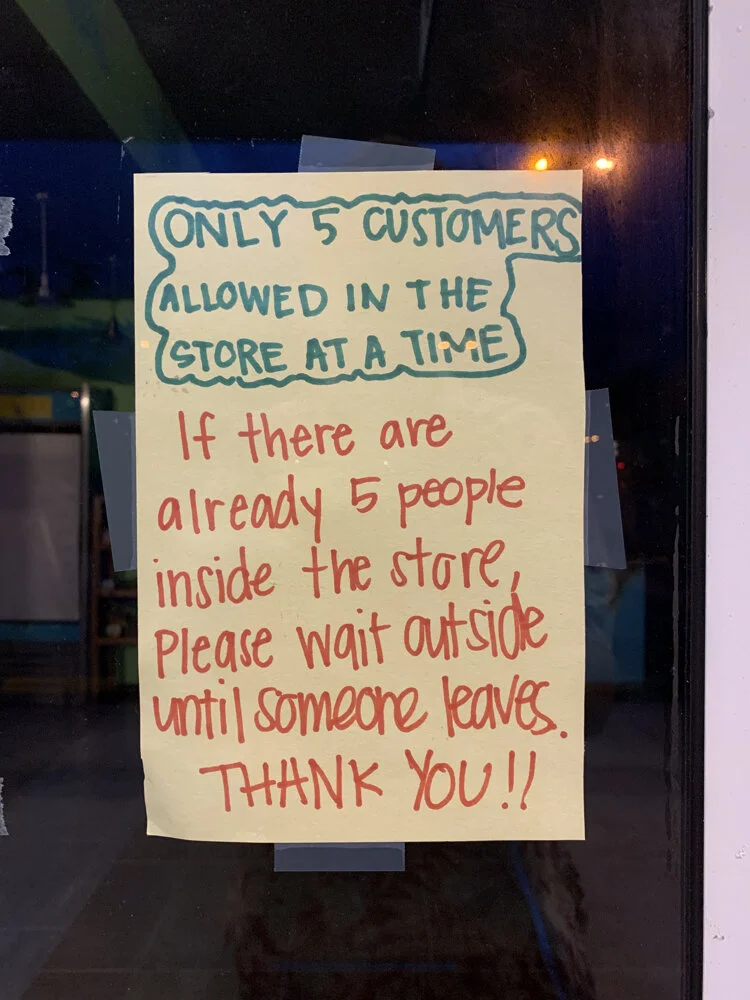 ONLY 5 CUSTOMERS
ALLOWED IN THE
STORE AT A TIME
If there are
already 5 people
inside the store,
Please wait outside
until someone leaves.
THANK YOU!!